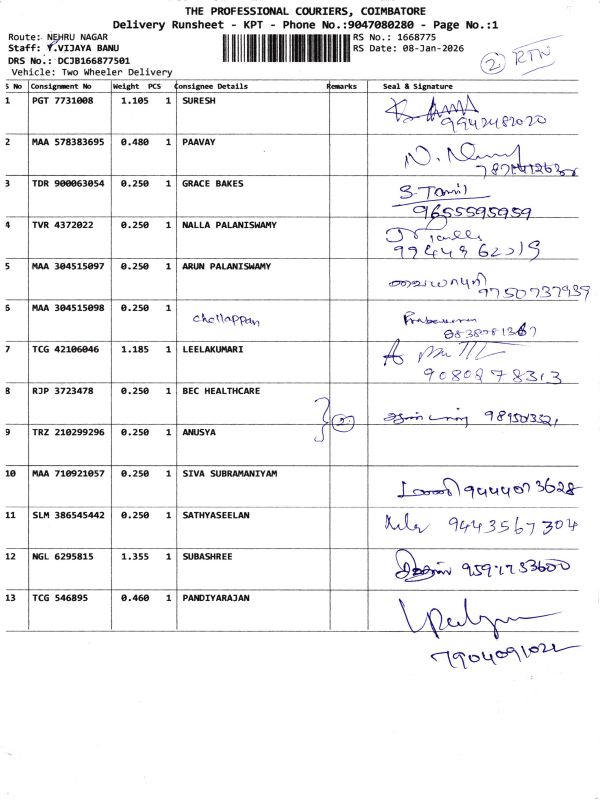 THE PROFESSIONAL COURIERS, COIMBATORE
Delivery Runsheet - KPT - Phone No.:9047080280 - Page No.:1
Route: NEHRU NAGAR RS No.: 1668775
Staff: T.VIJAYA BANU RS Date: 08-Jan-2026
DRS No.: DCJB166877501
Vehicle: Two Wheeler Delivery
② RTN
S No Consignment No Weight PCS Consignee Details Remarks Seal & Signature
1 PGT 7731008 1.105 1 SURESH
9942482020
2 MAA 578383695 0.480 1 PAAVAY
3 TDR 900063054 0.250 1 GRACE BAKES S. Tamil
9655595959
4 TVR 4372022 0.250 1 NALLA PALANISWAMY
5 MAA 304515097 0.250 1 ARUN PALANISWAMY
9750737939
6 MAA 304515098 0.250 1 Chellappan
7 TCG 42106046 1.185 1 LEELAKUMARI
9080878313
8 RJP 3723478 0.250 1 BEC HEALTHCARE
②
9 TRZ 210299296 0.250 1 ANUSYA
10 MAA 710921057 0.250 1 SIVA SUBRAMANIYAM 9444073628
11 SLM 386545442 0.250 1 SATHYASEELAN 9443567304
12 NGL 6295815 1.355 1 SUBASHREE
13 TCG 546895 0.460 1 PANDIYARAJAN
7904091022